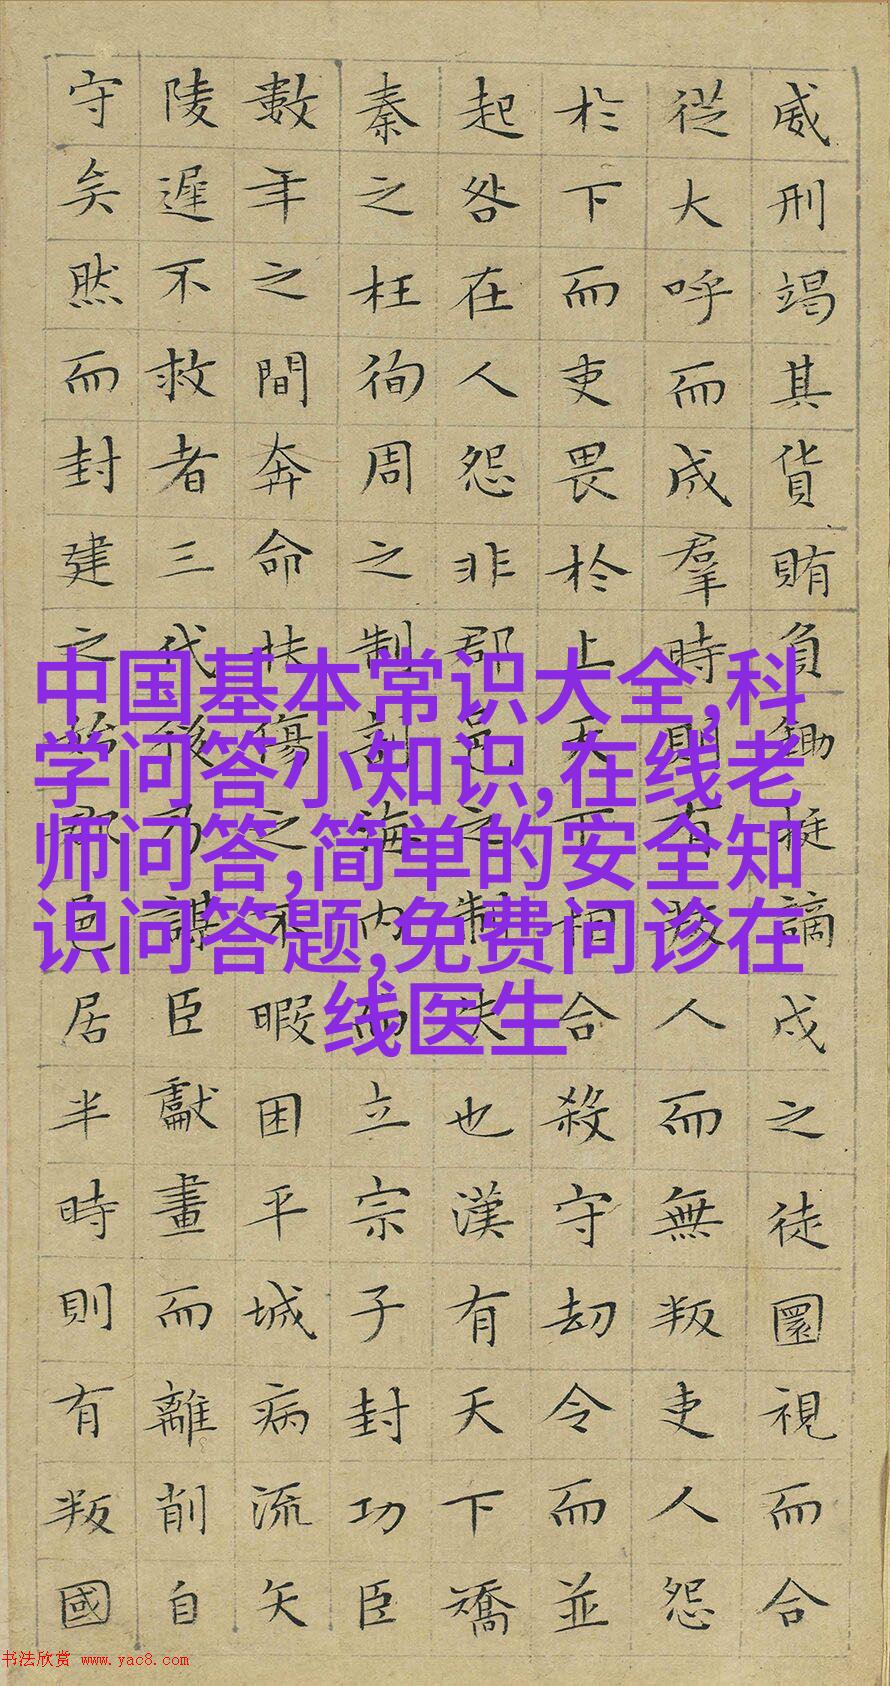 威刑竭其貨賄負鋤梃謫戍之徒圜視而合
從大呼而成羣時則有叛人而無叛吏人怨
於下而吏畏於上天下相合殺守劫令而並
起咎在人怨非郡邑之制失也漢有天下矯
秦之枉徇周之制剖海内而立宗子封功臣
數年之間奔命扶傷之不暇困平城病流矢
陵遲不救者三代後乃謀臣獻畫而離削自
守矣然而封建之始郡邑居半時則有叛國
中国基本常识大全,科
学问答小知识,在线老
师问答,简单的安全知
识问答题,免费问诊在
线医生
书法欣赏 www.yac8.com